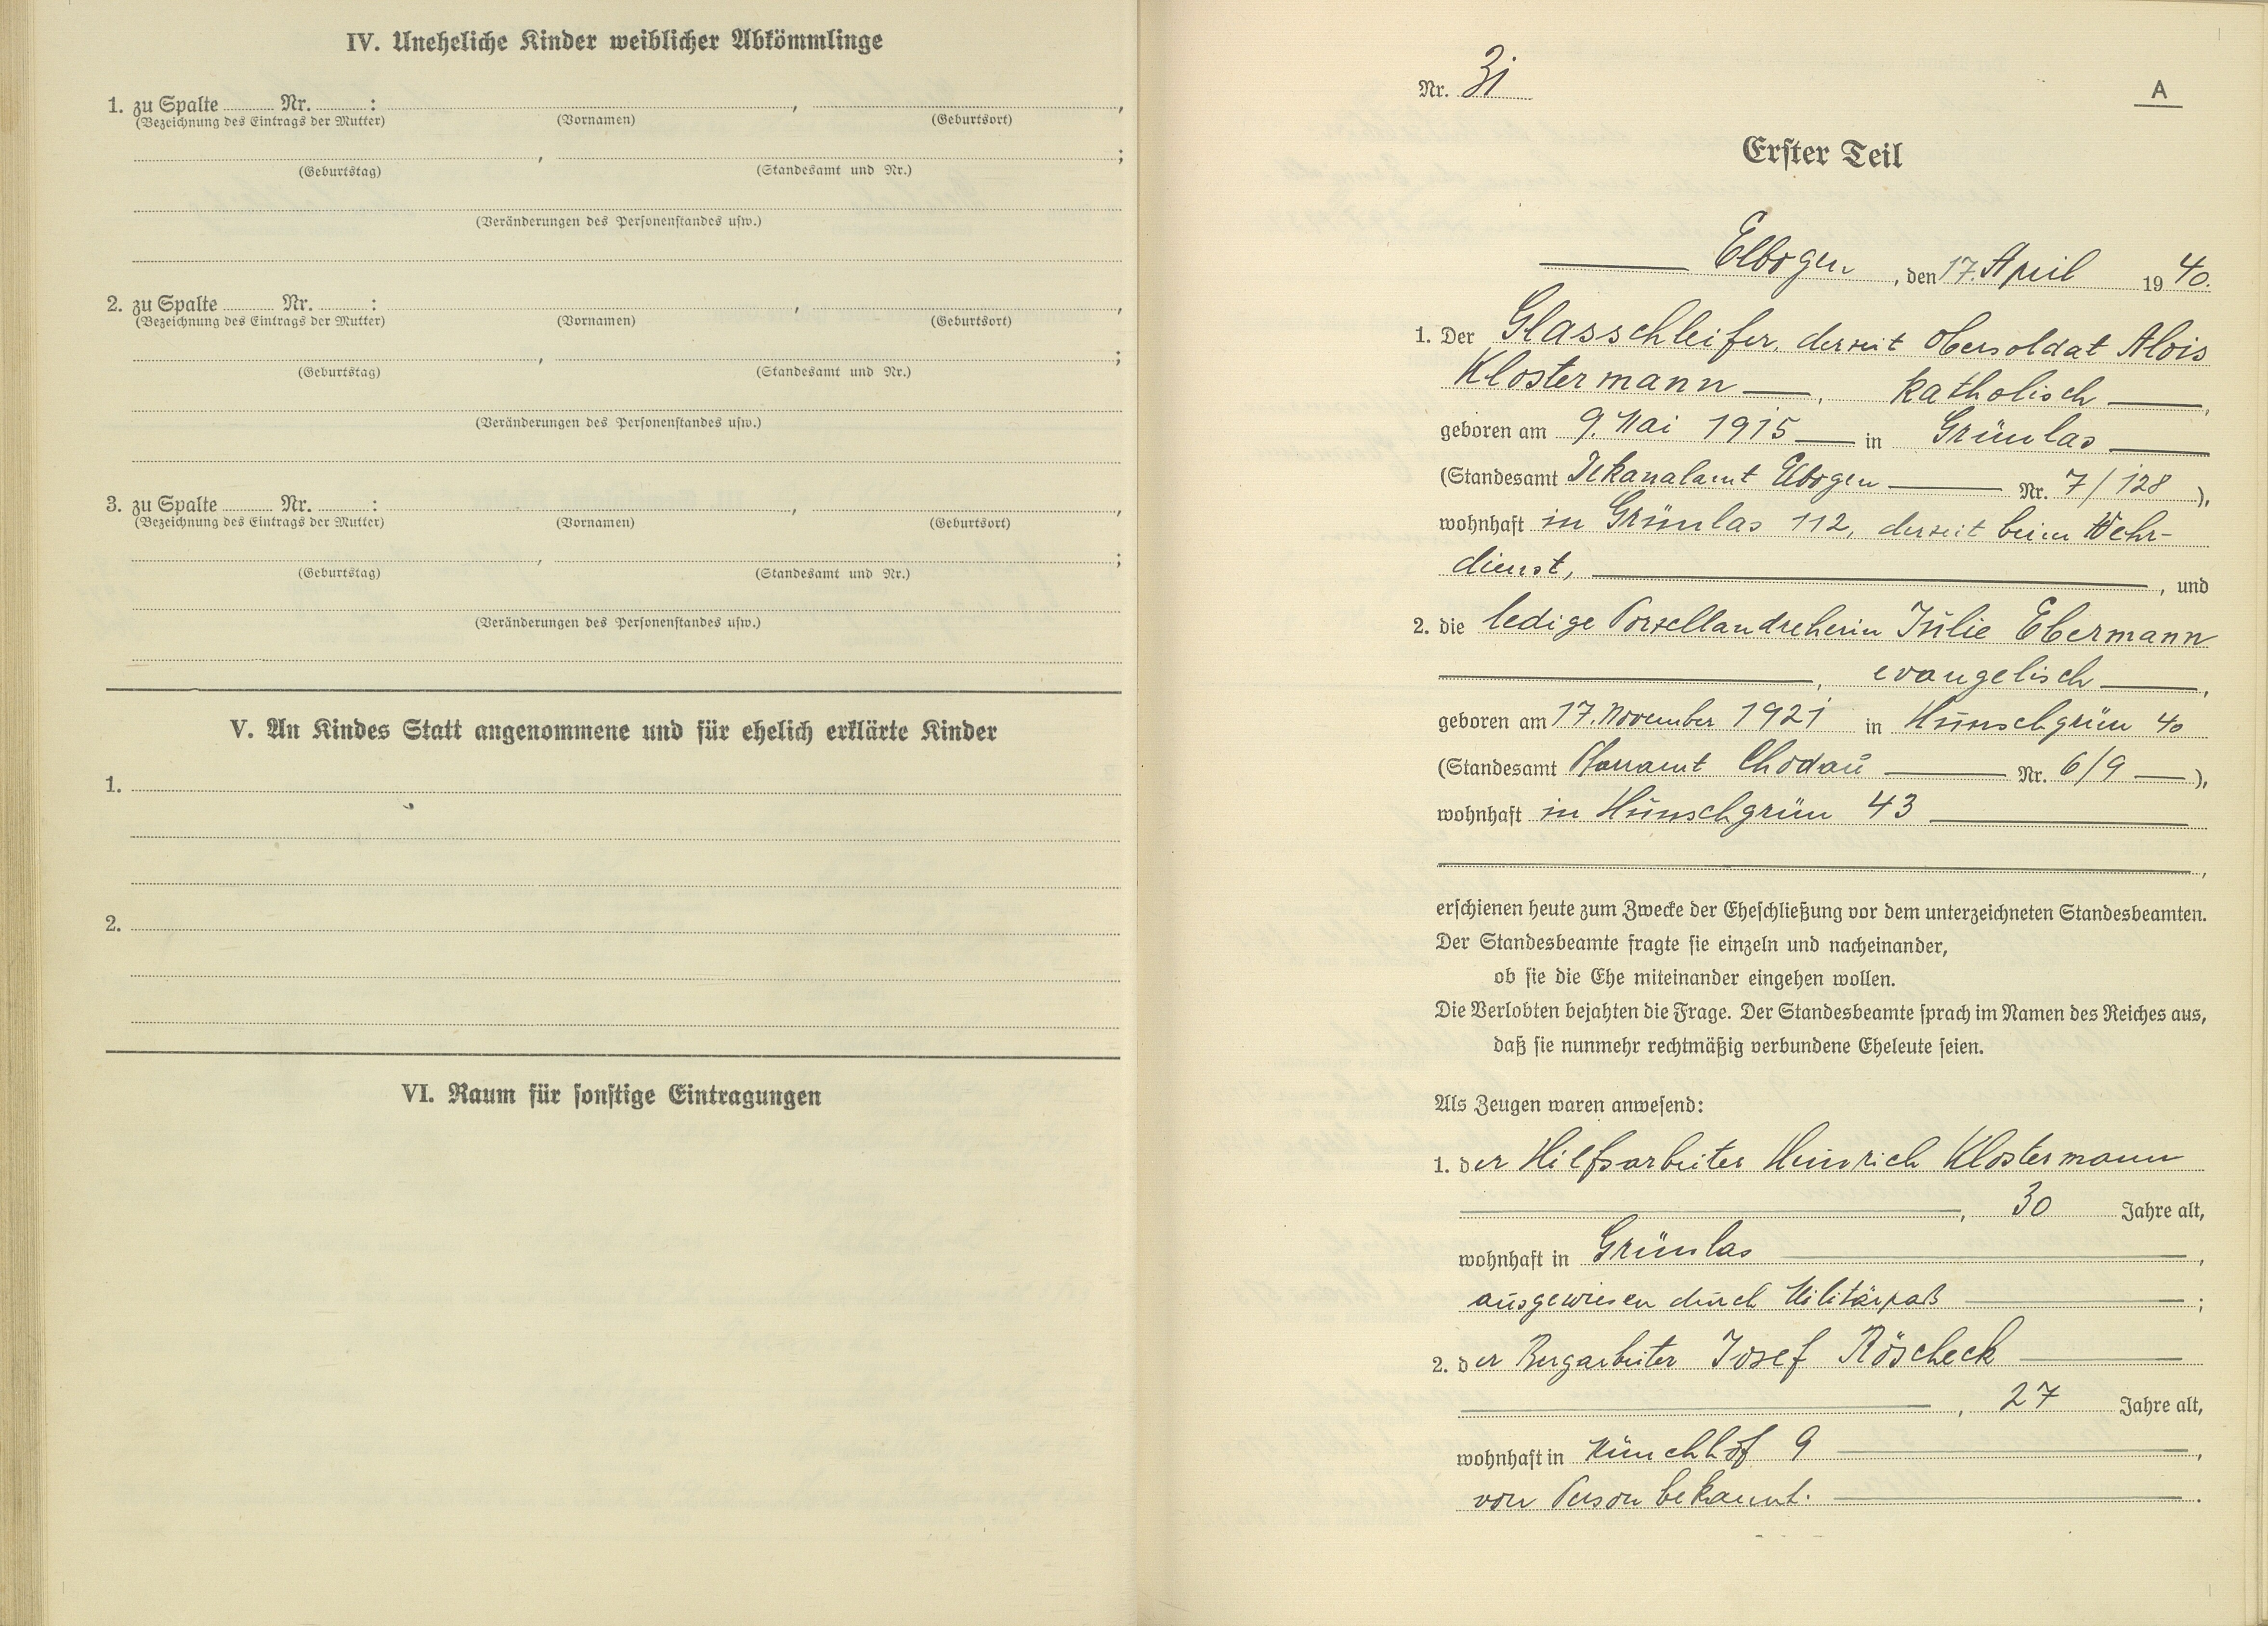 IV. Uneheliche Kinder weiblicher Abkömmlinge
1. zu Spalte ........ Nr. ........ : , ,
(Bezeichnung des Eintrags der Mutter) (Vornamen) (Geburtsort)
, ;
(Geburtstag) (Standesamt und Nr.)
(Veränderungen des Personenstandes usw.)
2. zu Spalte ........ Nr. ........ : , ,
(Bezeichnung des Eintrags der Mutter) (Vornamen) (Geburtsort)
, ;
(Geburtstag) (Standesamt und Nr.)
(Veränderungen des Personenstandes usw.)
3. zu Spalte ........ Nr. ........ : , ,
(Bezeichnung des Eintrags der Mutter) (Vornamen) (Geburtsort)
, ;
(Geburtstag) (Standesamt und Nr.)
(Veränderungen des Personenstandes usw.)
V. An Kindes Statt angenommene und für ehelich erklärte Kinder
1.
2.
VI. Raum für sonstige Eintragungen
Nr. 31
A
Erster Teil
Elbogen, den 17. April 1940.
1. Der Glasschleifer, derzeit Obersoldat Alois
Klostermann, katholisch,
geboren am 9. Mai 1915 in Grünlas
(Standesamt Dekanalamt Elbogen Nr. 7/128),
wohnhaft in Grünlas 112, derzeit beim Wehr-
dienst, , und
2. die ledige Porzellandreherin Julie Ebermann
, evangelisch,
geboren am 17. November 1921 in Hunschgrün 40
(Standesamt Pfarramt Chodau Nr. 6/9),
wohnhaft in Hunschgrün 43
,
erschienen heute zum Zwecke der Eheschließung vor dem unterzeichneten Standesbeamten.
Der Standesbeamte fragte sie einzeln und nacheinander,
ob sie die Ehe miteinander eingehen wollen.
Die Verlobten bejahten die Frage. Der Standesbeamte sprach im Namen des Reiches aus,
daß sie nunmehr rechtmäßig verbundene Eheleute seien.
Als Zeugen waren anwesend:
1. der Hilfsarbeiter Heinrich Klostermann
, 30 Jahre alt,
wohnhaft in Grünlas,
ausgewiesen durch Militärpaß;
2. der Bergarbeiter Josef Röscheck
, 27 Jahre alt,
wohnhaft in Münchhof 9,
von Person bekannt.